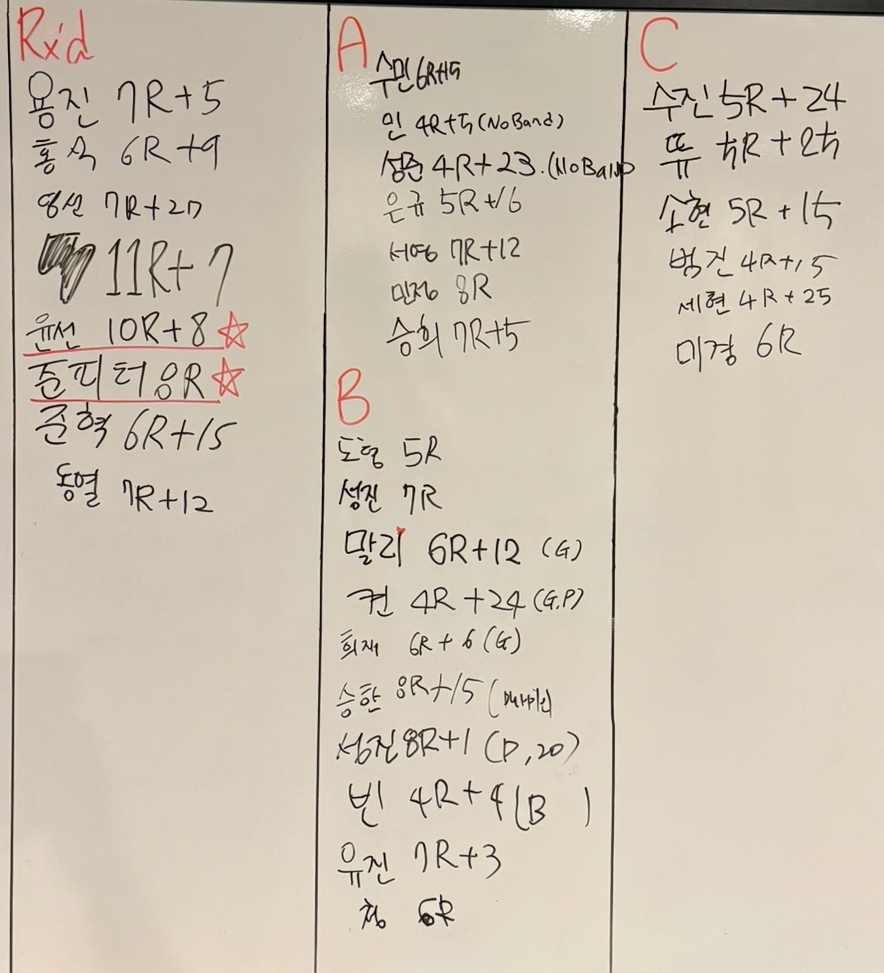 Rx'd
용진 7R+5
홍석 6R+9
영선 7R+27
11R+7
윤선 10R+8☆
준피터 8R☆
준혁 6R+15
동열 7R+12
A
수민 6R+15
민 4R+5 (No Band)
성준 4R+23. (No Band)
은규 5R+16
서영 7R+12
민정 8R
승희 7R+5
B
도형 5R
성진 7R
말리 6R+12 (G)
켠 4R+24 (G.P)
희재 6R+6 (G)
승한 8R+15
성진 8R+1 (P, 20)
빈 4R+4 (B )
유진 7R+3
청 6R
C
수진 5R+24
쮸 5R+25
소현 5R+15
범건 4R+15
세현 4R+25
미경 6R